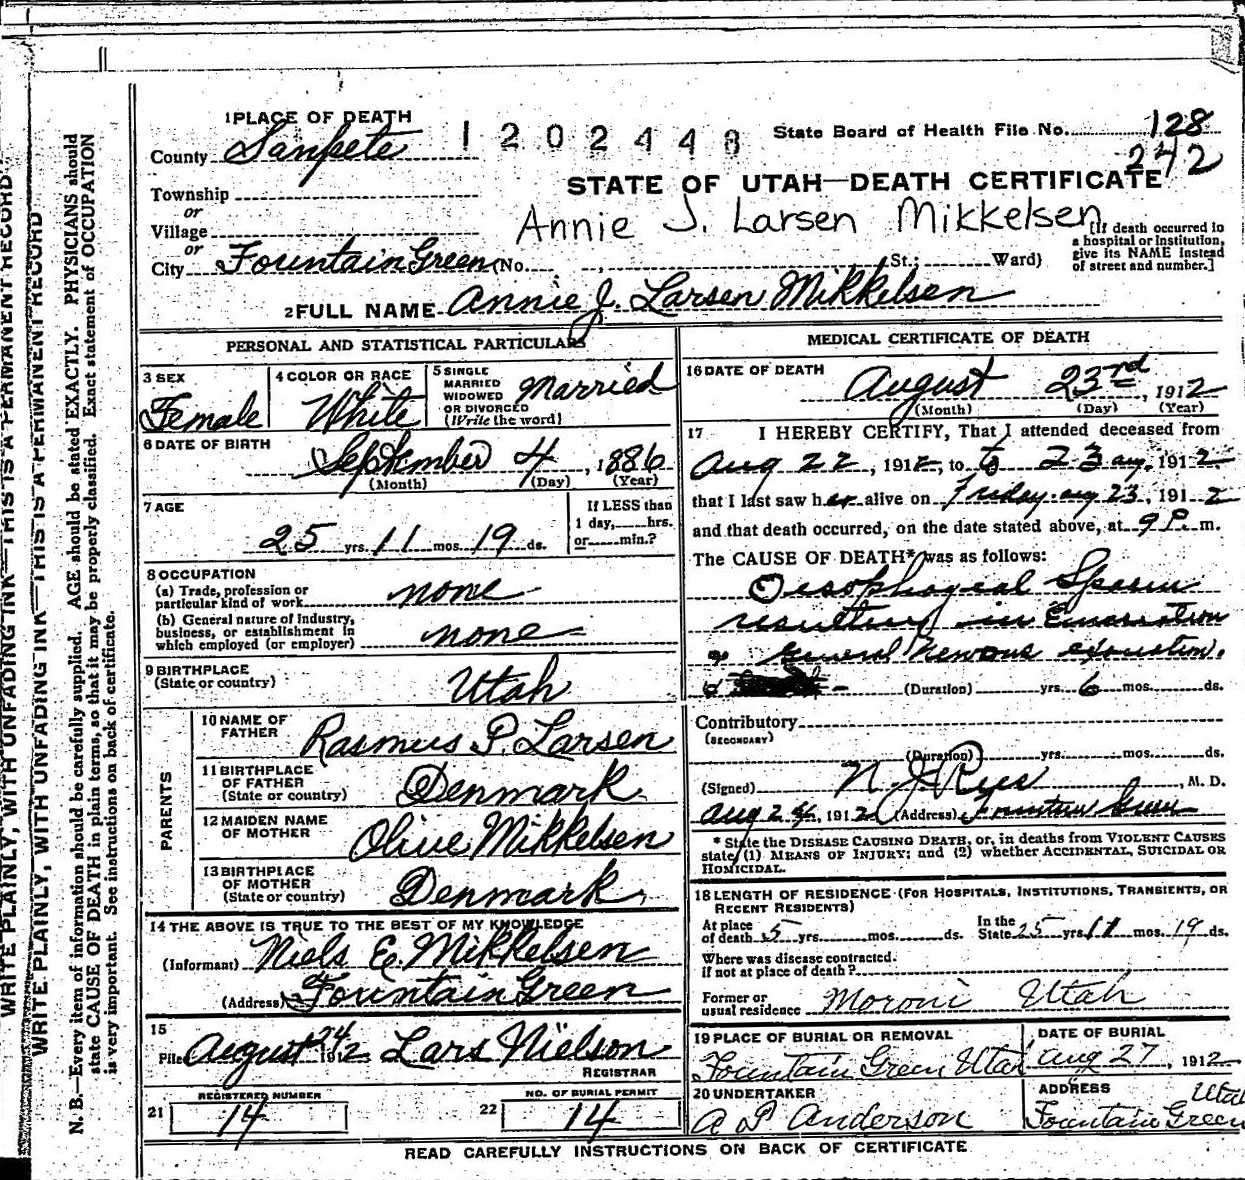 1 PLACE OF DEATH
County Sanpete
1202448
State Board of Health File No. 128
242
Township
or
Village
or
City Fountain Green (No. , St.; Ward)
STATE OF UTAH—DEATH CERTIFICATE
Annie J. Larsen Mikkelsen
[If death occurred in
a hospital or institution,
give its NAME instead
of street and number.]
2 FULL NAME Annie J. Larsen Mikkelsen
PERSONAL AND STATISTICAL PARTICULARS
3 SEX
Female
4 COLOR OR RACE
White
5 SINGLE
MARRIED
WIDOWED
OR DIVORCED
(Write the word)
Married
6 DATE OF BIRTH
September 4, 1886
(Month) (Day) (Year)
7 AGE
25 yrs. 11 mos. 19 ds.
If LESS than
1 day, hrs.
or min.?
8 OCCUPATION
(a) Trade, profession or
particular kind of work none
(b) General nature of Industry,
business, or establishment in
which employed (or employer) none
9 BIRTHPLACE
(State or country) Utah
PARENTS
10 NAME OF
FATHER Rasmus P. Larsen
11 BIRTHPLACE
OF FATHER
(State or country) Denmark
12 MAIDEN NAME
OF MOTHER Olive Mikkelsen
13 BIRTHPLACE
OF MOTHER
(State or country) Denmark
14 THE ABOVE IS TRUE TO THE BEST OF MY KNOWLEDGE
(Informant) Niels E. Mikkelsen
(Address) Fountain Green
15
Filed August 24 1912 Lars Nielson
REGISTRAR
21 REGISTERED NUMBER
14
22 NO. OF BURIAL PERMIT
14
MEDICAL CERTIFICATE OF DEATH
16 DATE OF DEATH
August 23rd, 1912
(Month) (Day) (Year)
17 I HEREBY CERTIFY, That I attended deceased from
Aug 22, 1912, to to 23 aug. 1912
that I last saw her alive on Friday. aug 23, 1912
and that death occurred, on the date stated above, at 9 P. m.
The CAUSE OF DEATH* was as follows:
Oesophagial Spasm
resulting in
General Nervous
(Duration) yrs. 6 mos. ds.
Contributory
(SECONDARY)
(Duration) yrs. mos. ds.
(Signed) N. J. Rees, M. D.
Aug 24, 1912 (Address) Fountain Green
* State the DISEASE CAUSING DEATH, or, in deaths from VIOLENT CAUSES
state (1) MEANS OF INJURY; and (2) whether ACCIDENTAL, SUICIDAL OR
HOMICIDAL.
18 LENGTH OF RESIDENCE (FOR HOSPITALS, INSTITUTIONS, TRANSIENTS, OR
RECENT RESIDENTS)
At place
of death 5 yrs. mos. ds.
In the
State 25 yrs. 11 mos. 19 ds.
Where was disease contracted.
if not at place of death?
Former or
usual residence Moroni Utah
19 PLACE OF BURIAL OR REMOVAL
Fountain Green Utah
DATE OF BURIAL
Aug 27, 1912
20 UNDERTAKER
A P Anderson
ADDRESS
Utah
Fountain Green
READ CAREFULLY INSTRUCTIONS ON BACK OF CERTIFICATE
WRITE PLAINLY, WITH UNFADING INK—THIS IS A PERMANENT RECORD
WRITE PLAINLY, WITH UNFADING INK—THIS IS A PERMANENT RECORD
N. B.—Every item of information should be carefully supplied. AGE should be stated EXACTLY. PHYSICIANS should
state CAUSE OF DEATH in plain terms, so that it may be properly classified. Exact statement of OCCUPATION
is very important. See instructions on back of certificate.